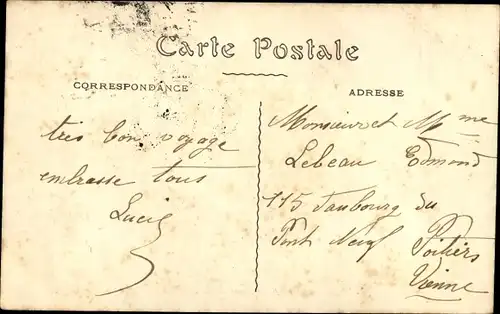 Carte Postale
CORRESPONDANCE
ADRESSE
tres bon voyage
embrasse tous
Lucie
Monsieur et Mme
Lebeau Edmond
115 Faubourg du
Pont Neuf
Poitiers
Vienne